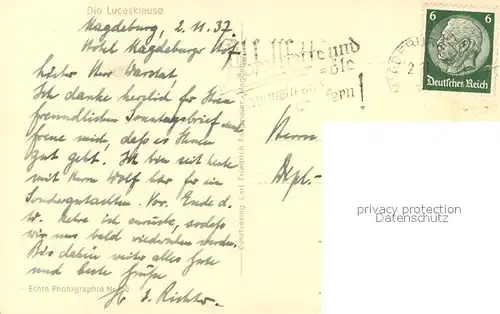 Die Lucasklause
Magdeburg, 2. 11. 37.
Hotel Magdeburger Hof
Lieber Herr Warstat.
Ich danke herzlich für Ihren
freundlichen Sonntagsbrief und
freue mich, dass es Ihnen
gut geht. Ich bin seit heute
mit Herrn Wolf hier für ein
Sondergutachten. Vor Ende d.
W. kehre ich zurück, sodass
wir uns bald wiedersehen werden.
Bis dahin weiter alles Gute
und beste Grüße
E. Richter.
Echte Photographie Nr.
Kunstverlag Carl Friedrich Magdeburg
und
6 6
Deutsches Reich
2
Herrn
Dipl.-
privacy protection
Datenschutz